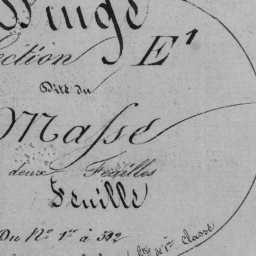 Section E¹
Dite du
Masse
deux Feuilles
Feuille
Du Nº 1er à 592
de 1re Classe